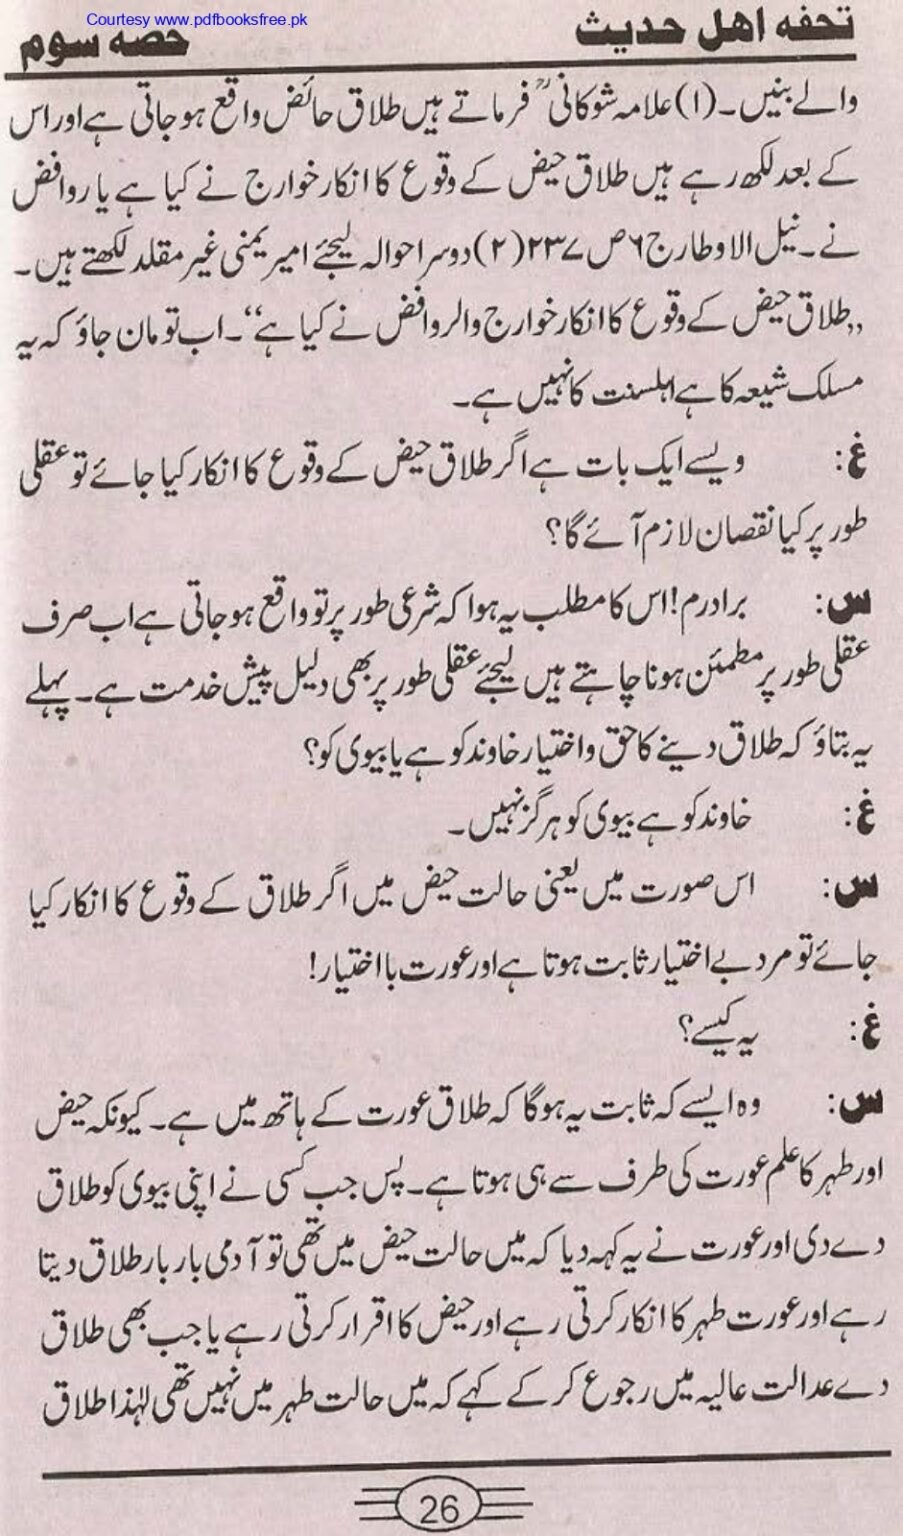 Courtesy www.pdfbooksfree.pk
تحفه اهل حدیث
حصه سوم
والے بنیں۔(۱) علامہ شوکانیؒ فرماتے ہیں طلاق حائض واقع ہو جاتی ہے اور اس
کے بعد لکھ رہے ہیں طلاق حیض کے وقوع کا انکار خوارج نے کیا ہے یا روافض
نے۔نیل الاوطارج ۶ ص ۲۳۷ (۲) دوسرا حوالہ لیجئے امیر یمنی غیر مقلد لکھتے ہیں۔
,,طلاق حیض کے وقوع کا انکار خوارج والروافض نے کیا ہے‘‘۔اب تو مان جاؤ کہ یہ
مسلک شیعہ کا ہے اہلسنت کا نہیں ہے۔
غ: ویسے ایک بات ہے اگر طلاق حیض کے وقوع کا انکار کیا جائے تو عقلی
طور پر کیا نقصان لازم آئے گا؟
س: برادرم! اس کا مطلب یہ ہوا کہ شرعی طور پر تو واقع ہو جاتی ہے اب صرف
عقلی طور پر مطمئن ہونا چاہتے ہیں لیجئے عقلی طور پر بھی دلیل پیش خدمت ہے۔پہلے
یہ بتاؤ کہ طلاق دینے کا حق و اختیار خاوند کو ہے یا بیوی کو؟
غ: خاوند کو ہے بیوی کو ہرگز نہیں۔
س: اس صورت میں یعنی حالت حیض میں اگر طلاق کے وقوع کا انکار کیا
جائے تو مرد بے اختیار ثابت ہوتا ہے اور عورت با اختیار!
غ: یہ کیسے؟
س: وہ ایسے کہ ثابت یہ ہوگا کہ طلاق عورت کے ہاتھ میں ہے۔کیونکہ حیض
اور طہر کا علم عورت کی طرف سے ہی ہوتا ہے۔پس جب کسی نے اپنی بیوی کو طلاق
دے دی اور عورت نے یہ کہہ دیا کہ میں حالت حیض میں تھی تو آدمی بار بار طلاق دیتا
رہے اور عورت طہر کا انکار کرتی رہے اور حیض کا اقرار کرتی رہے یا جب بھی طلاق
دے عدالت عالیہ میں رجوع کر کے کہے کہ میں حالت طہر میں نہیں تھی لہٰذا طلاق
26